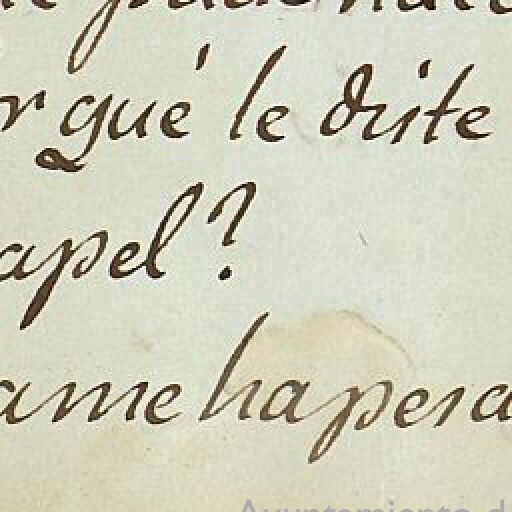 rqué le diste
apel?
ame ha pesa
Ayuntamiento d